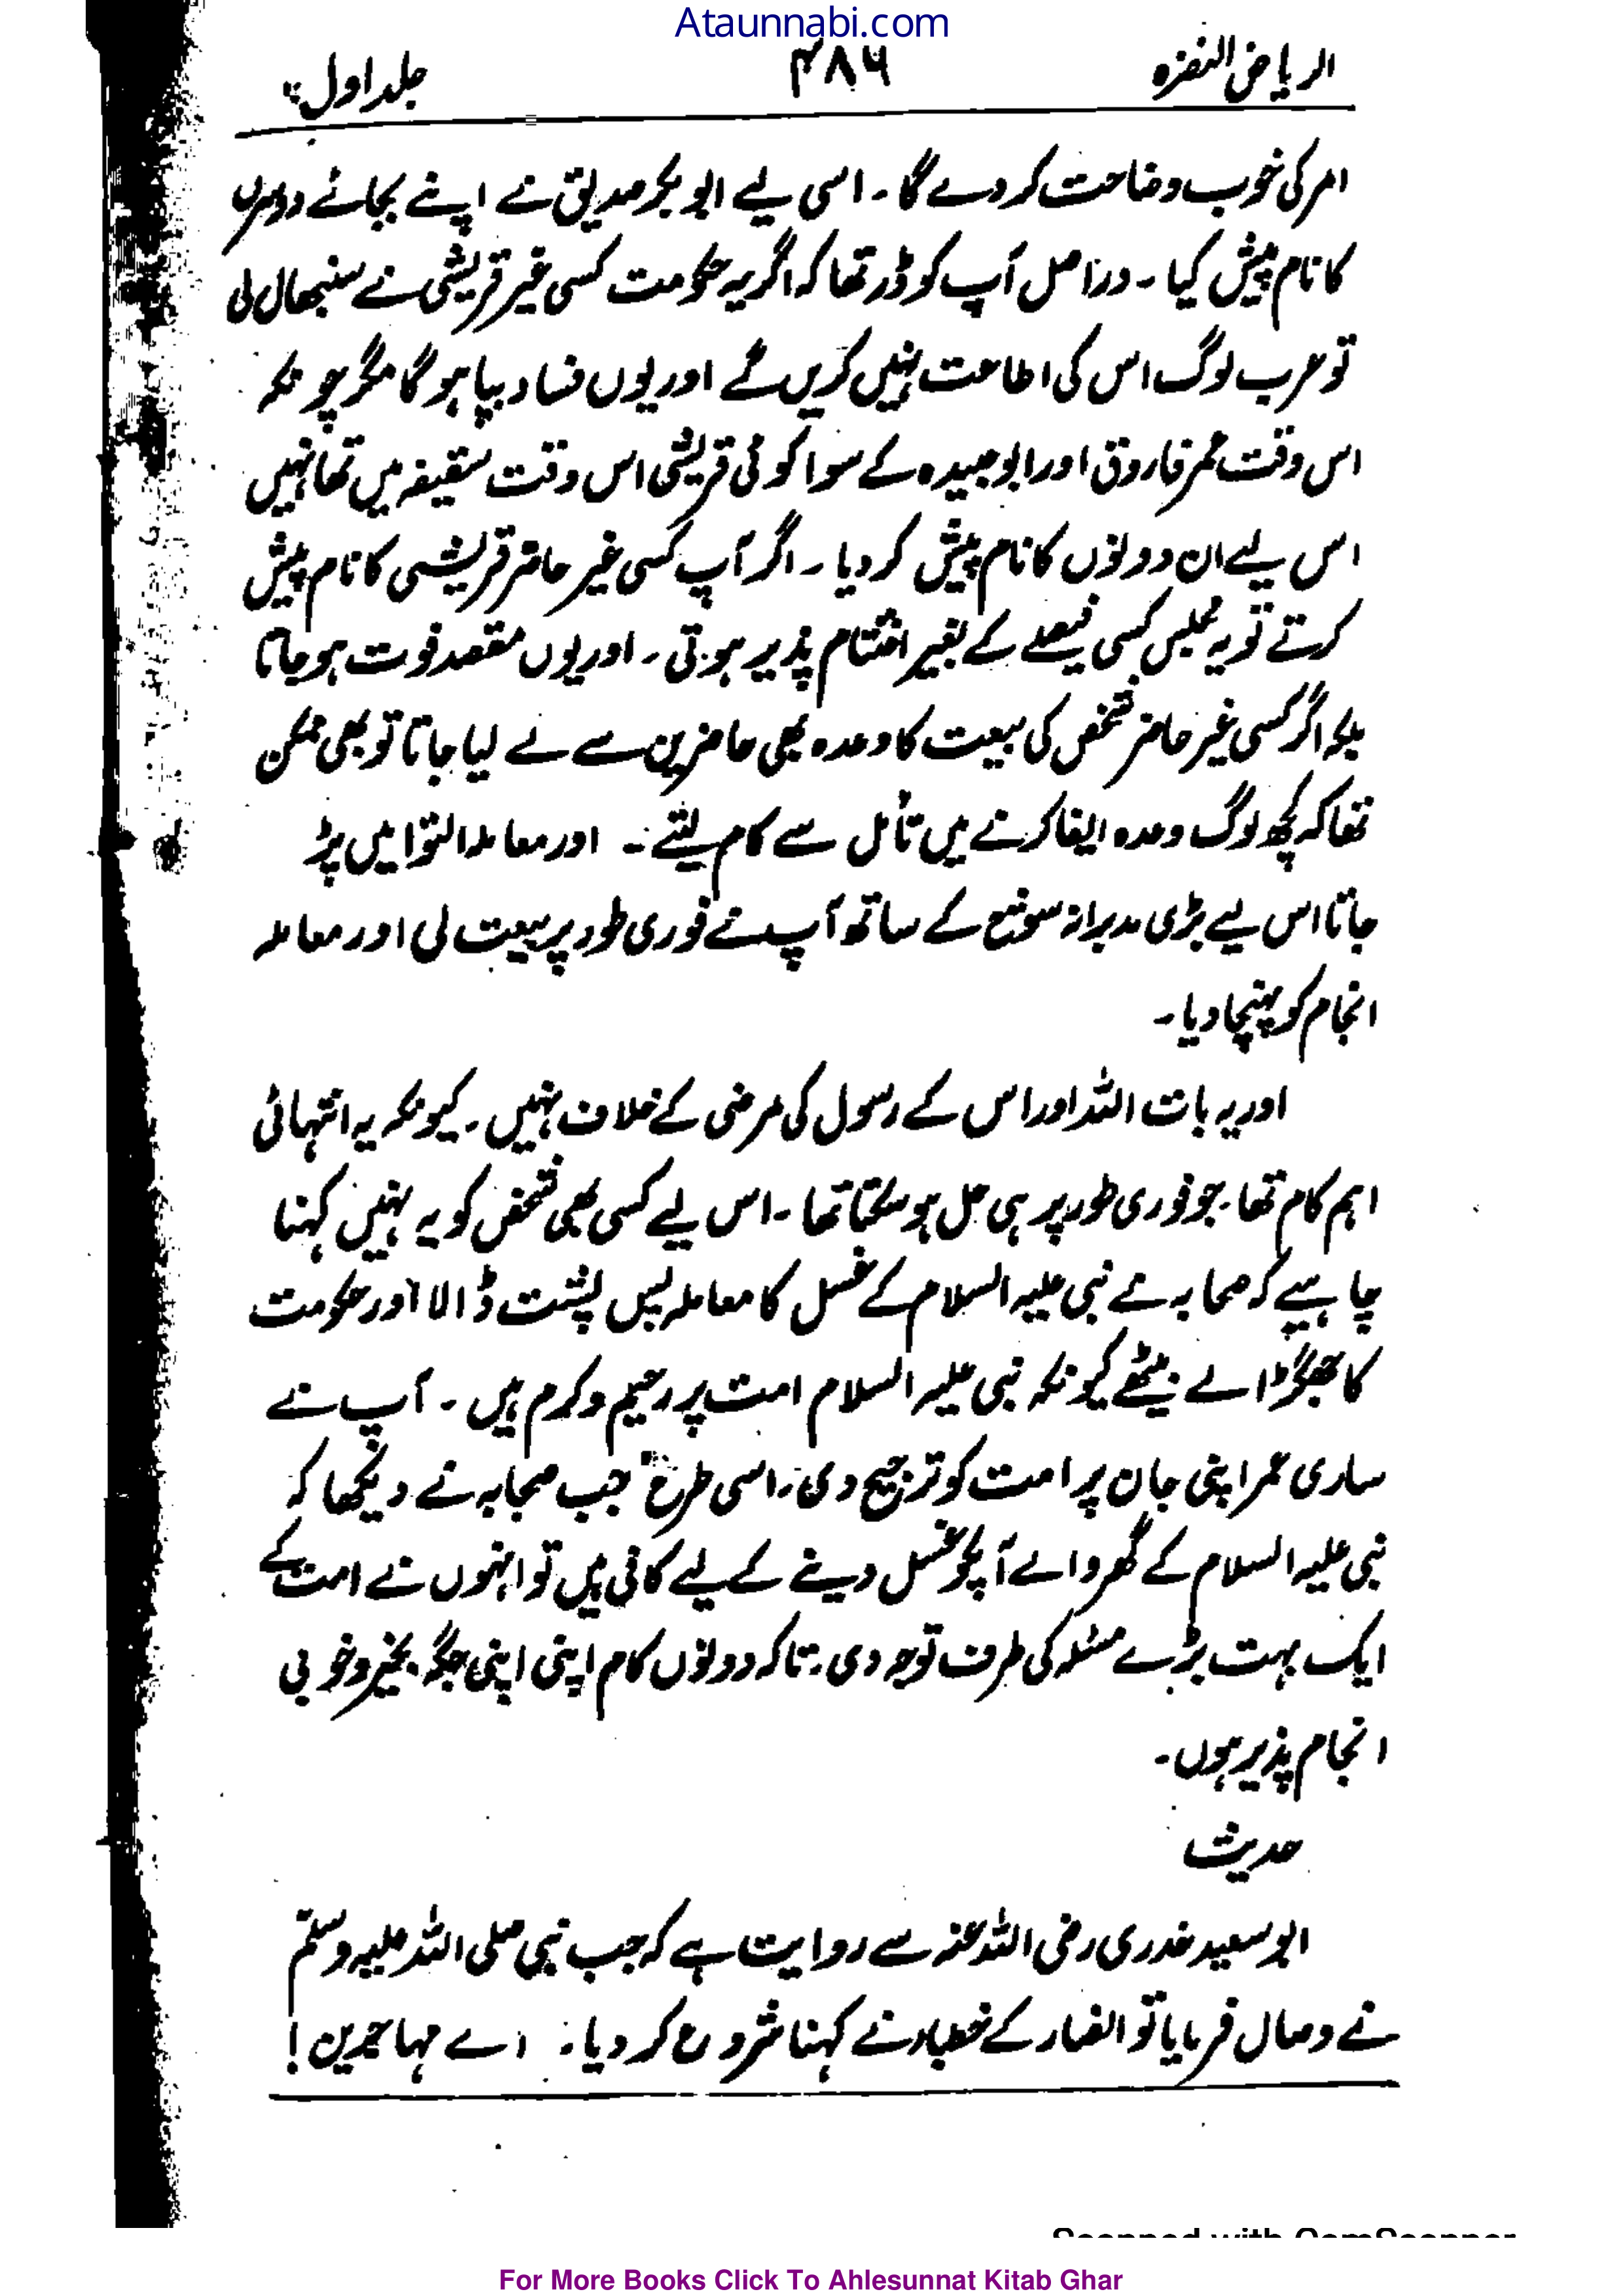 Ataunnabi.com
الریاض النضرہ ۴۸۶ جلد اول
امر کی خوب وضاحت کر دے گا۔ اسی لیے ابوبکر صدیق نے اپنے بجائے دوسروں
کا نام پیش کیا۔ دراصل آپ کو ڈر تھا کہ اگر یہ حکومت کسی غیر قریشی نے سنبھال لی
تو عرب لوگ اس کی اطاعت نہیں کریں گے اور یوں فساد بپا ہو گا مگر چونکہ
اس وقت عمر فاروق اور ابو عبیدہ کے سوا کوئی قریشی اس وقت سقیفہ میں تھا نہیں
اس لیے ان دونوں کا نام پیش کر دیا۔ اگر آپ کسی غیر حاضر قریشی کا نام پیش
کرتے تو یہ مجلس کسی فیصلے کے بغیر اختتام پذیر ہوتی۔ اور یوں مقصد فوت ہو جاتا
بلکہ اگر کسی غیر حاضر شخص کی بیعت کا وعدہ بھی حاضرین سے لے لیا جاتا تو بھی ممکن
تھا کہ کچھ لوگ وعدہ ایفا کرنے میں تأمل سے کام لیتے۔ اور معاملہ التوا میں پڑ
جاتا اس لیے بڑی مدبرانہ سوچ کے ساتھ آپ نے فوری طور پر بیعت لی اور معاملہ
انجام کو پہنچا دیا۔
اور یہ بات اللہ اور اس کے رسول کی مرضی کے خلاف نہیں۔ کیونکہ یہ انتہائی
اہم کام تھا۔ جو فوری طور پر ہی حل ہو سکتا تھا۔ اس لیے کسی بھی شخص کو یہ نہیں کہنا
چاہیے کہ صحابہ نے نبی علیہ السلام کے غسل کا معاملہ پس پشت ڈالا اور حکومت
کا جھگڑا لے بیٹھے کیونکہ نبی علیہ السلام امت پر رحیم و کرم ہیں۔ آپ نے
ساری عمر اپنی جان پر امت کو ترجیح دی۔ اسی طرح جب صحابہ نے دیکھا کہ
نبی علیہ السلام کے گھر والے آپکو غسل دینے کے لیے کافی ہیں تو انہوں نے امت کے
ایک بہت بڑے مسئلہ کی طرف توجہ دی۔ تاکہ دونوں کام اپنی اپنی جگہ بخیر و خوبی
انجام پذیر ہوں۔
حدیث
ابو سعید خدری رضی اللہ عنہ سے روایت ہے کہ جب نبی صلی اللہ علیہ وسلم
نے وصال فرمایا تو انصار کے خطباء نے کہنا شروع کر دیا۔ اے مہاجرین!
Scanned with CamScanner
For More Books Click To Ahlesunnat Kitab Ghar